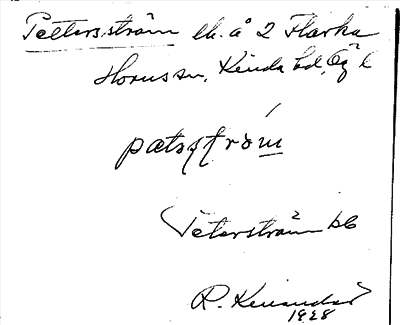 Pettersström lh. å 2 Flarka
Horns sn, Kinda hd, Ög l
patosström
Peterström bb
R. Kinander
1928